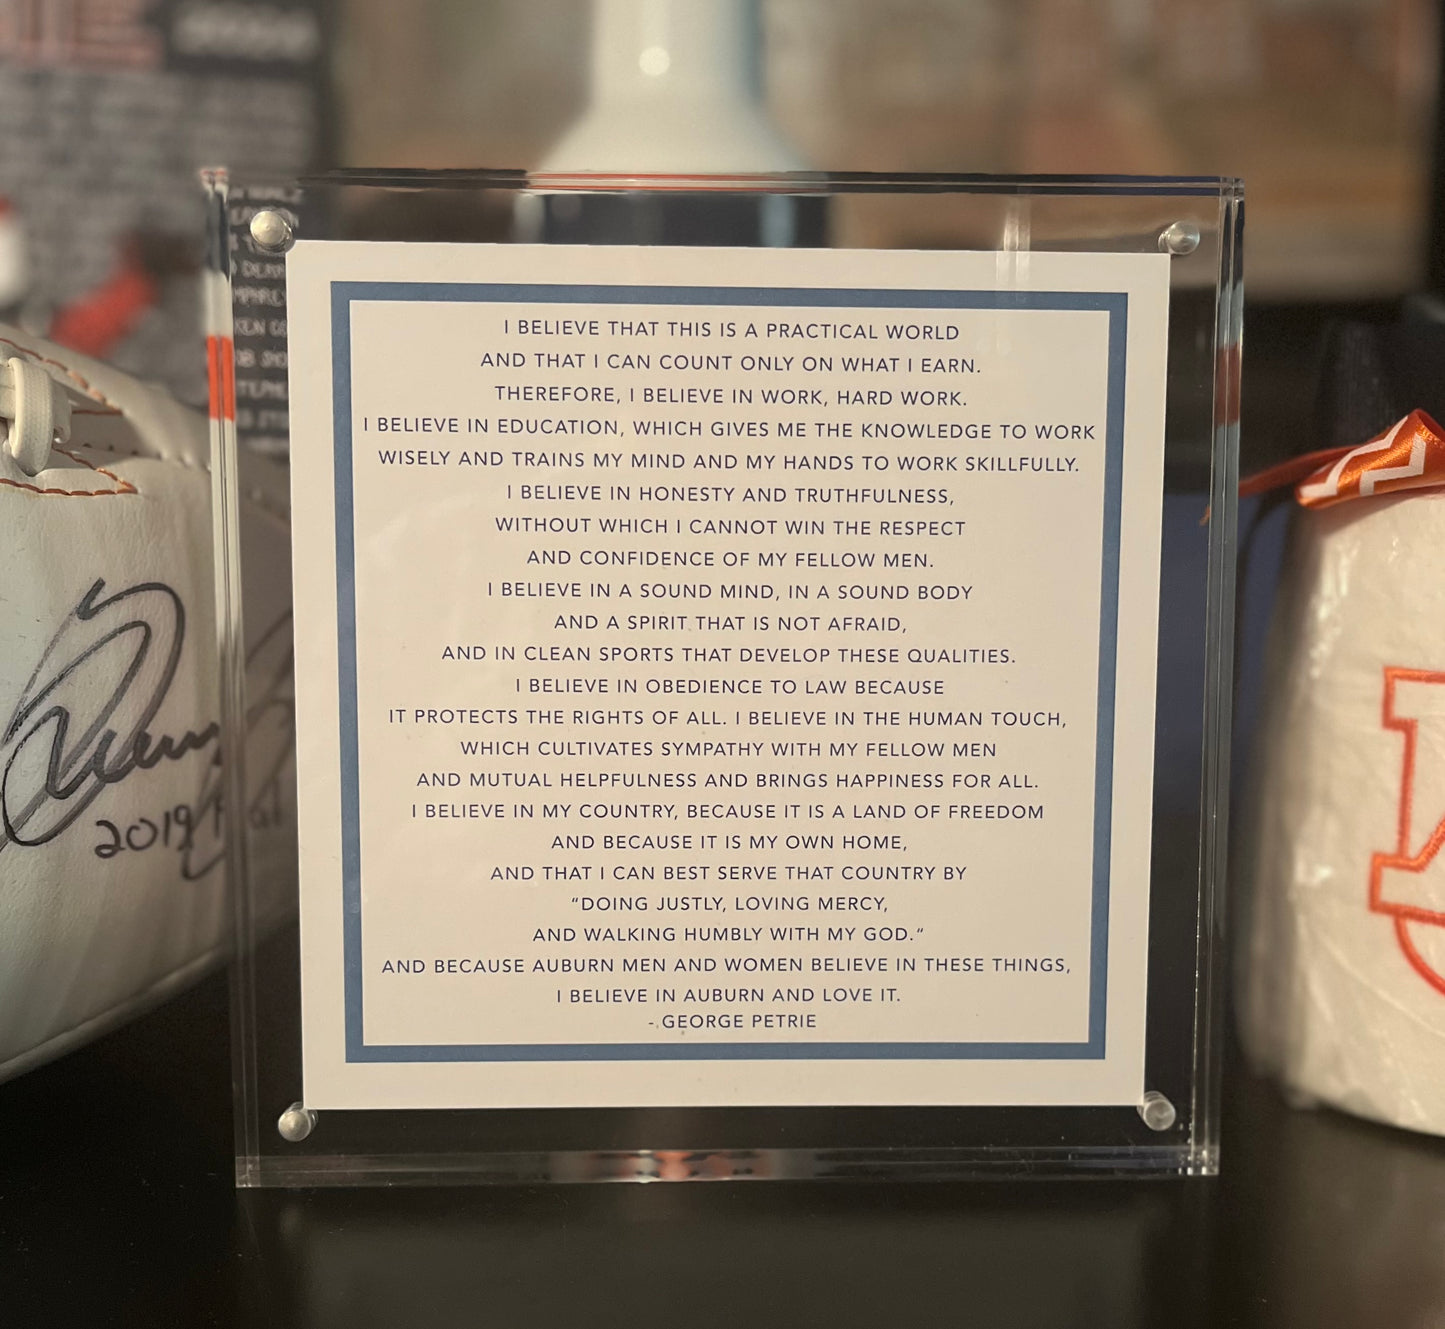 I BELIEVE THAT THIS IS A PRACTICAL WORLD
AND THAT I CAN COUNT ONLY ON WHAT I EARN.
THEREFORE, I BELIEVE IN WORK, HARD WORK.
I BELIEVE IN EDUCATION, WHICH GIVES ME THE KNOWLEDGE TO WORK
WISELY AND TRAINS MY MIND AND MY HANDS TO WORK SKILLFULLY.
I BELIEVE IN HONESTY AND TRUTHFULNESS,
WITHOUT WHICH I CANNOT WIN THE RESPECT
AND CONFIDENCE OF MY FELLOW MEN.
I BELIEVE IN A SOUND MIND, IN A SOUND BODY
AND A SPIRIT THAT IS NOT AFRAID,
AND IN CLEAN SPORTS THAT DEVELOP THESE QUALITIES.
I BELIEVE IN OBEDIENCE TO LAW BECAUSE
IT PROTECTS THE RIGHTS OF ALL. I BELIEVE IN THE HUMAN TOUCH,
WHICH CULTIVATES SYMPATHY WITH MY FELLOW MEN
AND MUTUAL HELPFULNESS AND BRINGS HAPPINESS FOR ALL.
I BELIEVE IN MY COUNTRY, BECAUSE IT IS A LAND OF FREEDOM
AND BECAUSE IT IS MY OWN HOME,
AND THAT I CAN BEST SERVE THAT COUNTRY BY
“DOING JUSTLY, LOVING MERCY,
AND WALKING HUMBLY WITH MY GOD.”
AND BECAUSE AUBURN MEN AND WOMEN BELIEVE IN THESE THINGS,
I BELIEVE IN AUBURN AND LOVE IT.
- GEORGE PETRIE
2019